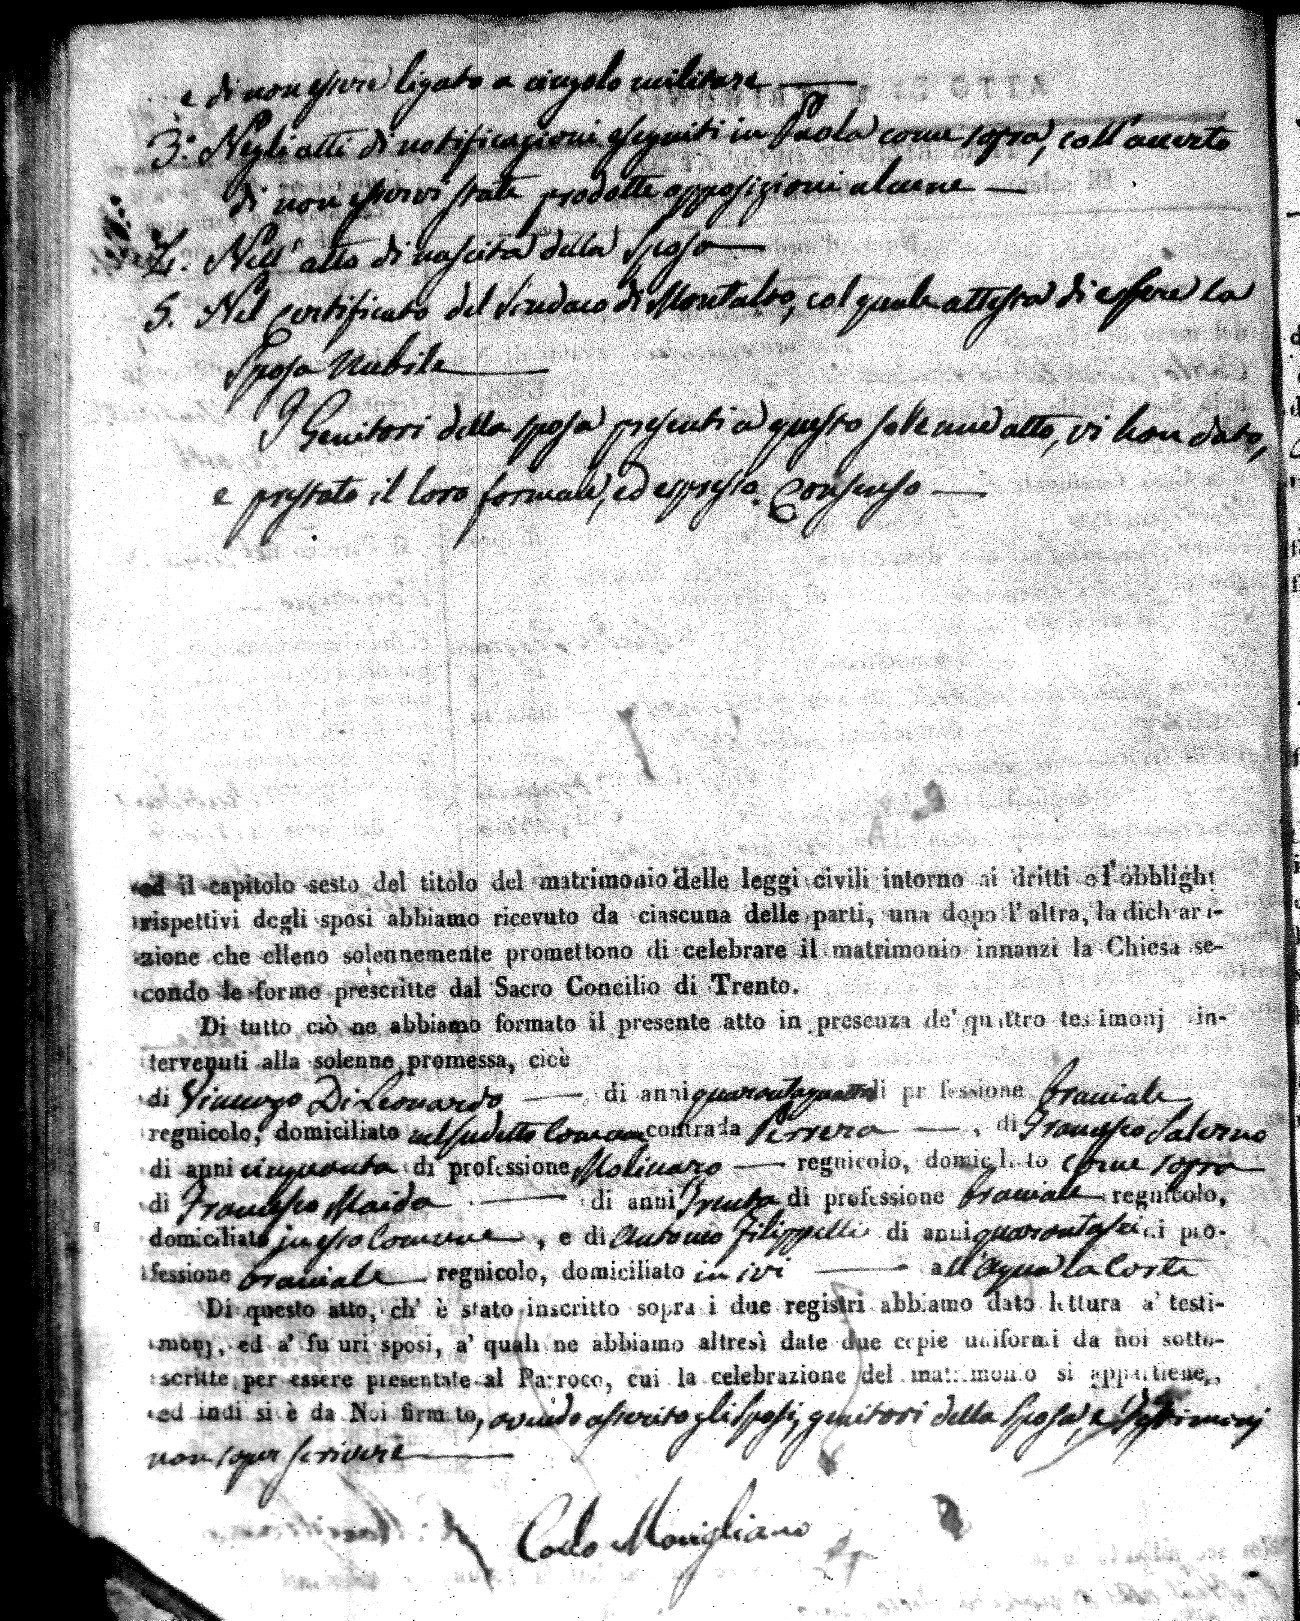 e di non essere ligato a cingolo militare —
3.° Negli atti di notificazioni eseguiti in Paola come sopra, coll'accerto
di non esservi state prodotte opposizioni alcune —
4. Nell'atto di nascita della Sposa —
5. Nel Certificato del Sindaco di Montalto, col quale attesta di essere la
Sposa Nubile —
I Genitori della sposa presenti a questo solenne atto, vi han dato,
e prestato il loro formale, ed espresso Consenso —
ed il capitolo sesto del titolo del matrimonio delle leggi civili intorno ai dritti e l'obblighi
rispettivi degli sposi abbiamo ricevuto da ciascuna delle parti, una dopo l'altra, la dichiari-
zione che elleno solennemente promettono di celebrare il matrimonio innanzi la Chiesa se-
condo le forme prescritte dal Sacro Concilio di Trento.
Di tutto ciò ne abbiamo formato il presente atto in presenza de' quattro testimonj in-
tervenuti alla solenne promessa, cioè
di Vincenzo Di Leonardo — di anni quarantaquattro di professione braciale
regnicolo, domiciliato nel sudetto Comune contrada Perrera —, di Francesco Salerno
di anni cinquanta di professione Molinaro — regnicolo, domiciliato come sopra
di Francesco Maida — di anni trenta di professione braciale regnicolo,
domiciliato in esso Comune, e di Antonio Filippelli di anni quarantasei di pro-
fessione braciale regnicolo, domiciliato in ivi — all'Acqua la Corte
Di questo atto, ch' è stato inscritto sopra i due registri abbiamo dato lettura a' testi-
monj, ed a' futuri sposi, a' quali ne abbiamo altresì date due copie uniformi da noi sotto-
scritte per essere presentate al Parroco, cui la celebrazione del matrimonio si appartiene,
ed indi si è da Noi firmato, avendo asserito gli Sposi, genitori della Sposa, e Testimonj
non saper scrivere —
Carlo Marigliano